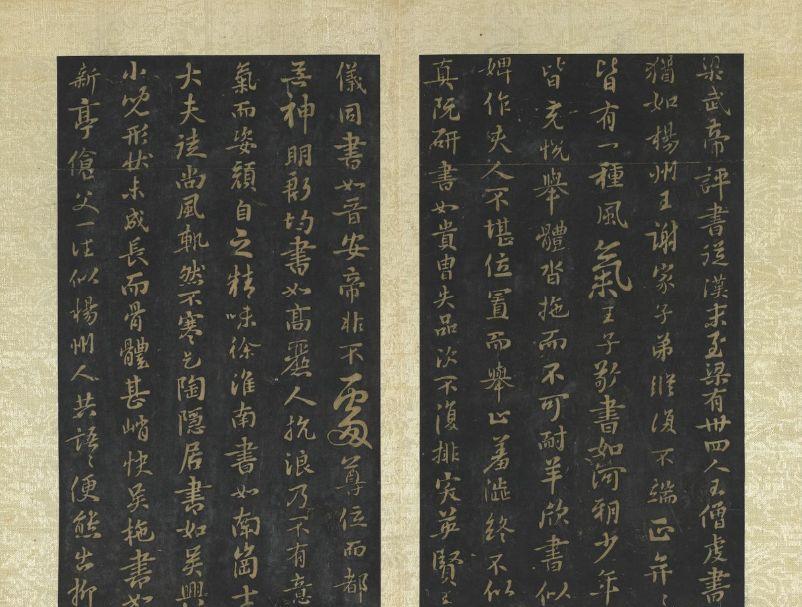 梁武帝評書從漢末至梁有卅四人王僧虔書
猶如楊州王謝家子弟縱復不端正弈〻
皆有一種風氣王子敬書如河朔少年
皆充悅舉體沓拖而不可耐羊欣書似
婢作夫人不堪位置而舉止羞澀終不似
真阮研書如貴胄失品次不復排突英賢王
儀同書如晉安帝非不處尊位而都
無神明殷均書如高麗人抗浪乃不有意
氣而姿顏自乏精味徐淮南書如南崗士
大夫徒尚風軌然不寒乞陶隱居書如吳興
小兒形狀未成長而骨體甚峭快吳施書如
新亭傖父一往似楊州人共語〻便態出柳